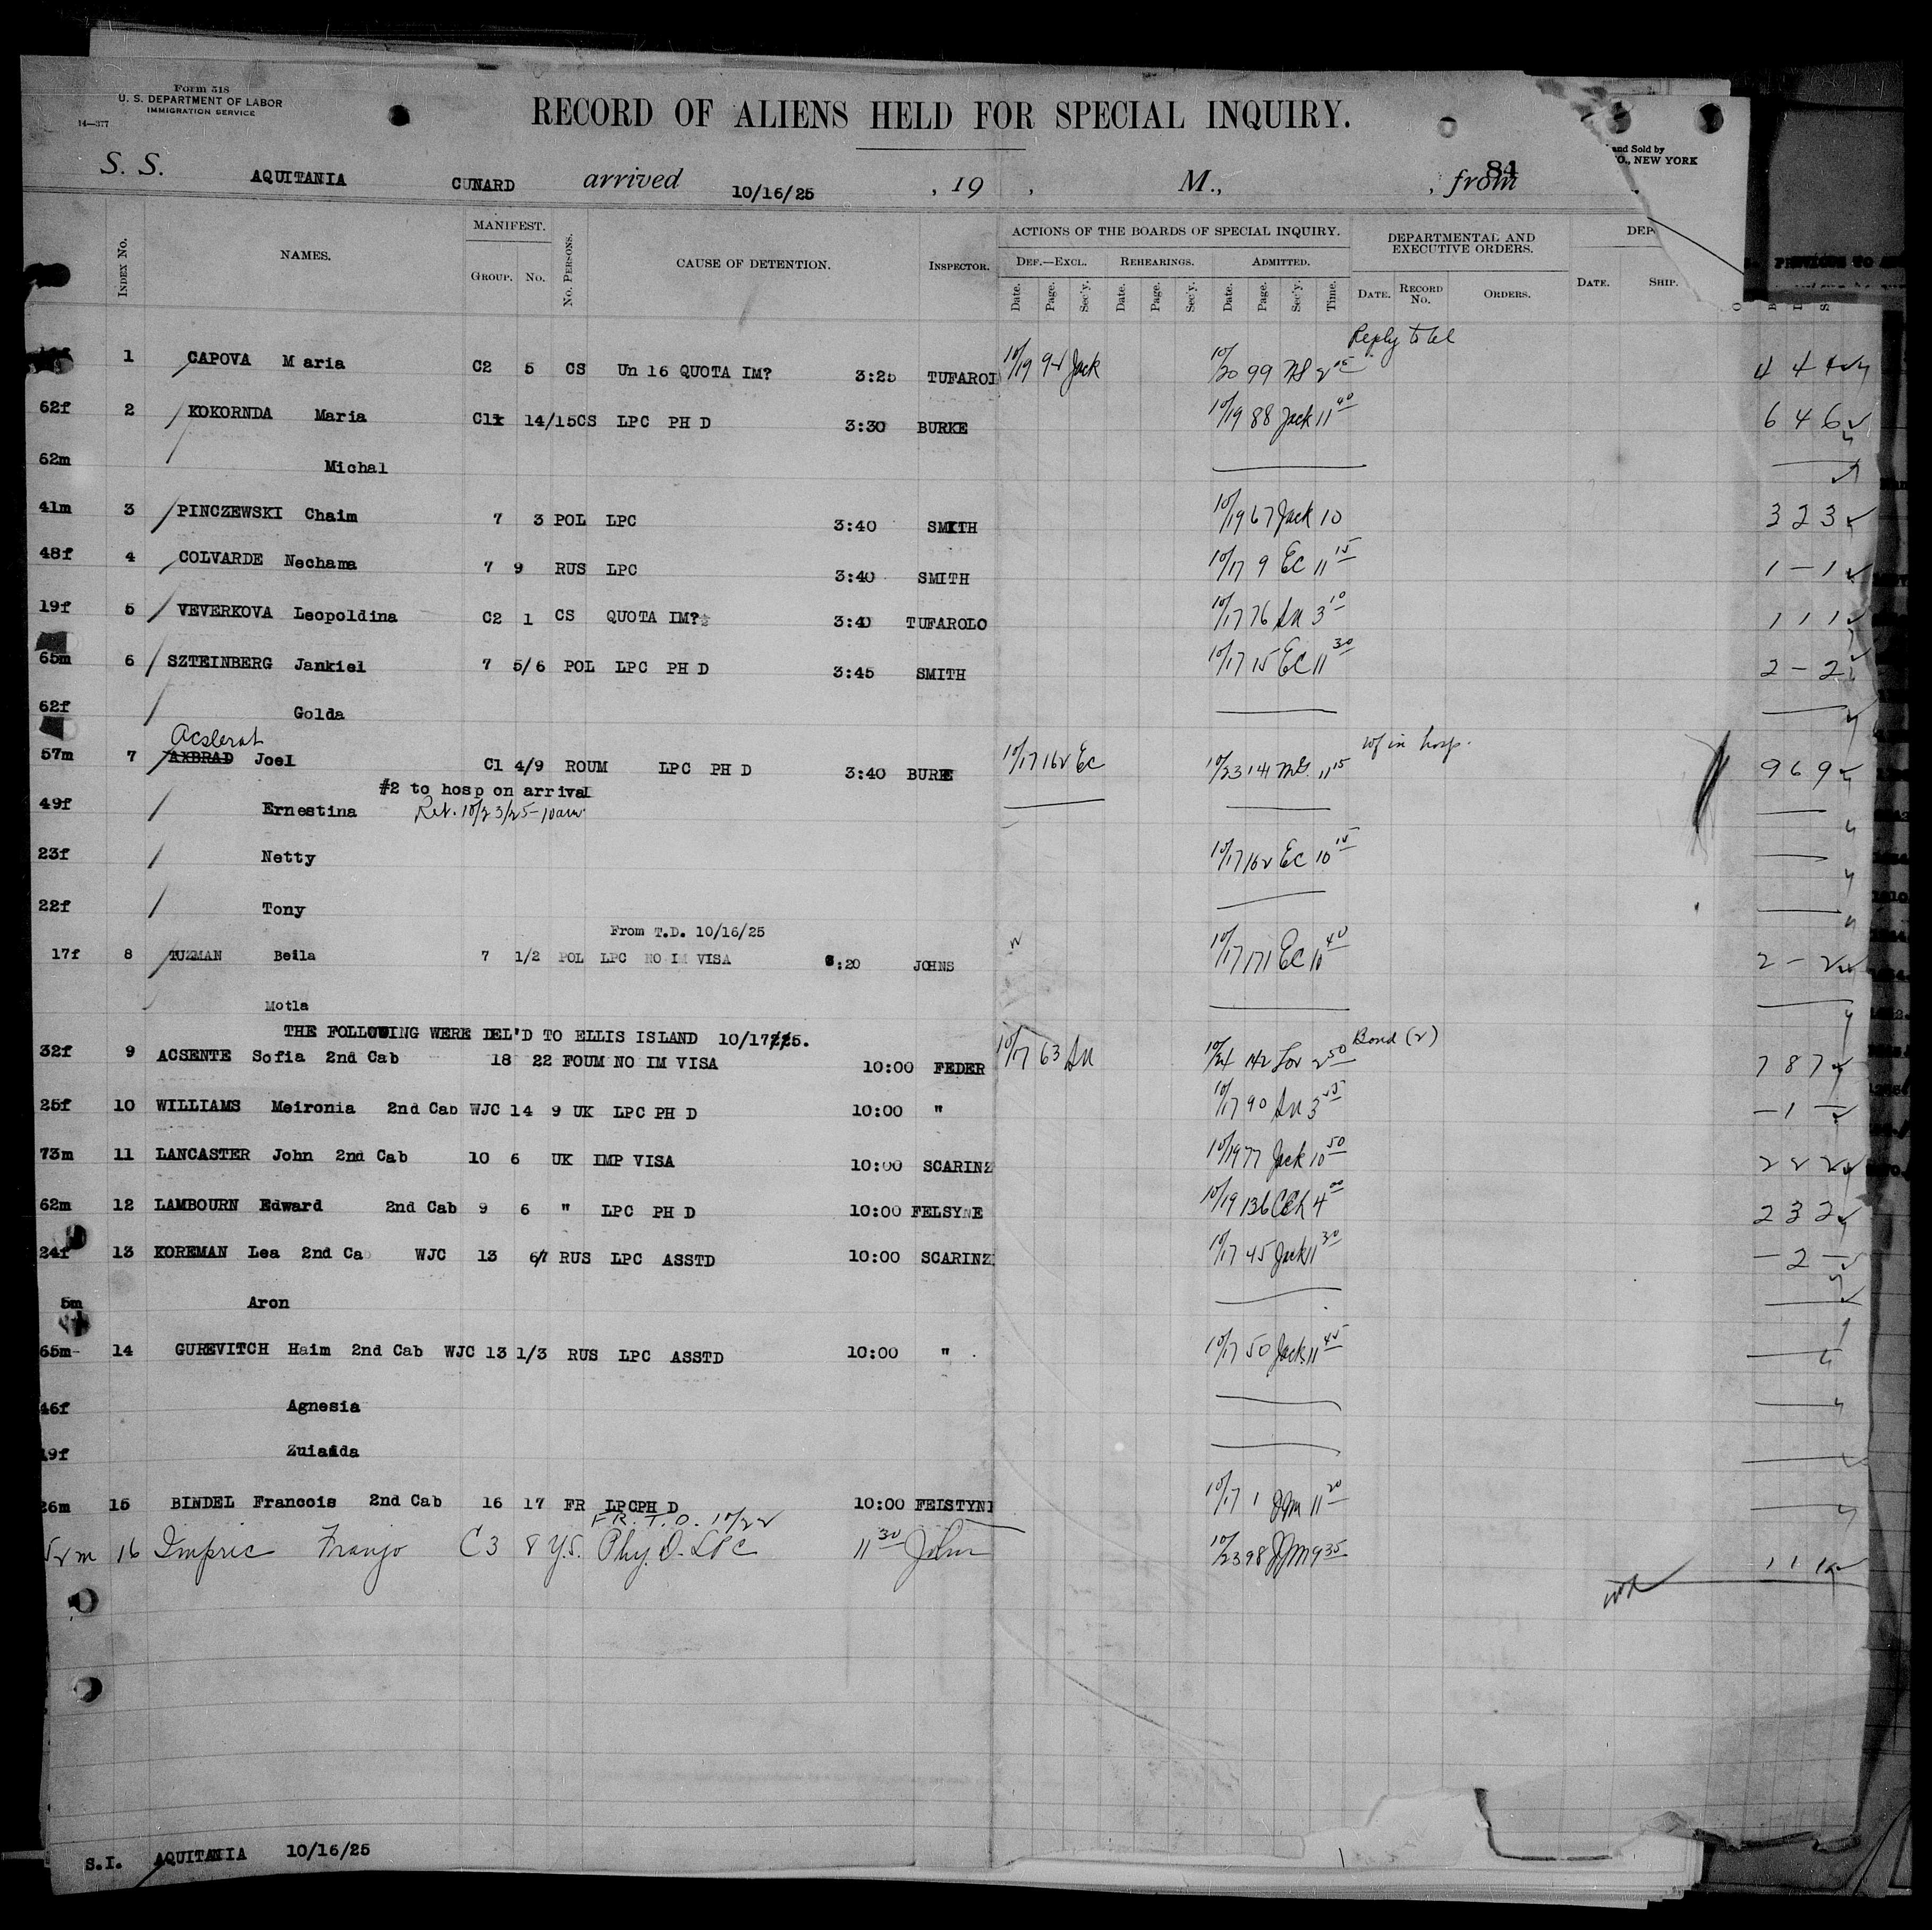 Form 518
U. S. DEPARTMENT OF LABOR
IMMIGRATION SERVICE
14—377
RECORD OF ALIENS HELD FOR SPECIAL INQUIRY.
and Sold by
CO., NEW YORK
S. S. AQUITANIA CUNARD arrived 10/16/25 , 19 , M., , from 84
INDEX NO. NAMES. MANIFEST. GROUP. NO. NO. PERSONS. CAUSE OF DETENTION. INSPECTOR. ACTIONS OF THE BOARDS OF SPECIAL INQUIRY. DEF.—EXCL. REHEARINGS. ADMITTED. DEPARTMENTAL AND EXECUTIVE ORDERS. DEP
Date. Page. Sec'y. Date. Page. Sec'y. Date. Page. Sec'y. Time. DATE. RECORD NO. ORDERS. DATE. SHIP.
Reply to tel
1 CAPOVA Maria C2 5 CS Un 16 QUOTA IM? 3:25 TUFAROL 10/19 94 Jack 10/20 99 4 4 4
62f 2 KOKORNDA Maria C1 14/15CS LPC PH D 3:30 BURKE 10/19 88 Jack 11 40 6 4 6
62m Michal
41m 3 PINCZEWSKI Chaim 7 3 POL LPC 3:40 SMITH 10/19 67 Jack 10 3 2 3
48f 4 COLVARDE Nechama 7 9 RUS LPC 3:40 SMITH 10/17 9 EC 11 15 1 – 1
19f 5 VEVERKOVA Leopoldina C2 1 CS QUOTA IM? 3:40 TUFAROLO 10/17 76 3 10 1 1 1
65m 6 SZTEINBERG Jankiel 7 5/6 POL LPC PH D 3:45 SMITH 10/17 15 EC 11 30 2 – 2
62f Golda
Acslerat
57m 7 AXBRAD Joel C1 4/9 ROUM LPC PH D 3:40 BURKE 10/17 162 Ec 10/23 141 11 15 wf in hosp. 9 6 9
#2 to hosp on arrival
49f Ernestina Ret. 10/23/25-10am
23f Netty 10/17 162 EC 10 15
22f Tony
From T.D. 10/16/25
17f 8 TUZMAN Beila 7 1/2 POL LPC NO IM VISA 6:20 JOHNS 10/17 171 EC 10 40 2 – 2
Motla
THE FOLLOWING WERE DEL'D TO ELLIS ISLAND 10/17/25.
32f 9 ACSENTE Sofia 2nd Cab 18 22 FOUM NO IM VISA 10:00 FEDER 10/17 63 10/24 142 2 50 Bond (2) 7 8 7
25f 10 WILLIAMS Meironia 2nd Cab WJC 14 9 UK LPC PH D 10:00 " 10/17 90 3 – 1 –
73m 11 LANCASTER John 2nd Cab 10 6 UK IMP VISA 10:00 SCARINZ 10/19 77 Jack 10 50 2 2 2
62m 12 LAMBOURN Edward 2nd Cab 9 6 " LPC PH D 10:00 FELSYNE 10/19 136 4 00 2 3 2
24f 13 KOREMAN Lea 2nd Cab WJC 13 6/7 RUS LPC ASSTD 10:00 SCARINZ 10/17 45 Jack 11 30 – 2 –
5m Aron
65m 14 GUREVITCH Haim 2nd Cab WJC 13 1/3 RUS LPC ASSTD 10:00 " 10/17 50 Jack 11 45
46f Agnesia
19f Zuiaida
26m 15 BINDEL Francois 2nd Cab 16 17 FR LPCPH D 10:00 FEISTYNE 10/17 1 JJM 11 20
FR. T.D. 10/22
52m 16 Impric Franjo C3 8 Y.S. Phy. D. LPC 11 30 John 10/23 98 JJM 9 35 1 1 1
S.I. AQUITANIA 10/16/25